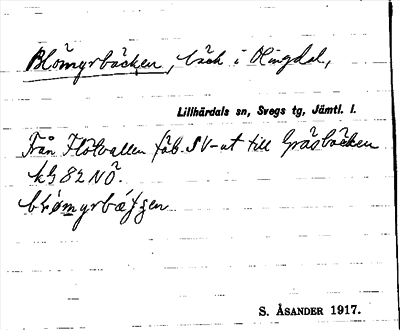 Blömyrbäcken, bäck i Hingdal,
Lillhärdals sn, Svegs tg, Jämtl. l.
Från Flötvallen fäb. SV-ut till Gräsbäcken
kG 82 NÖ.
S. ÅSANDER 1917.